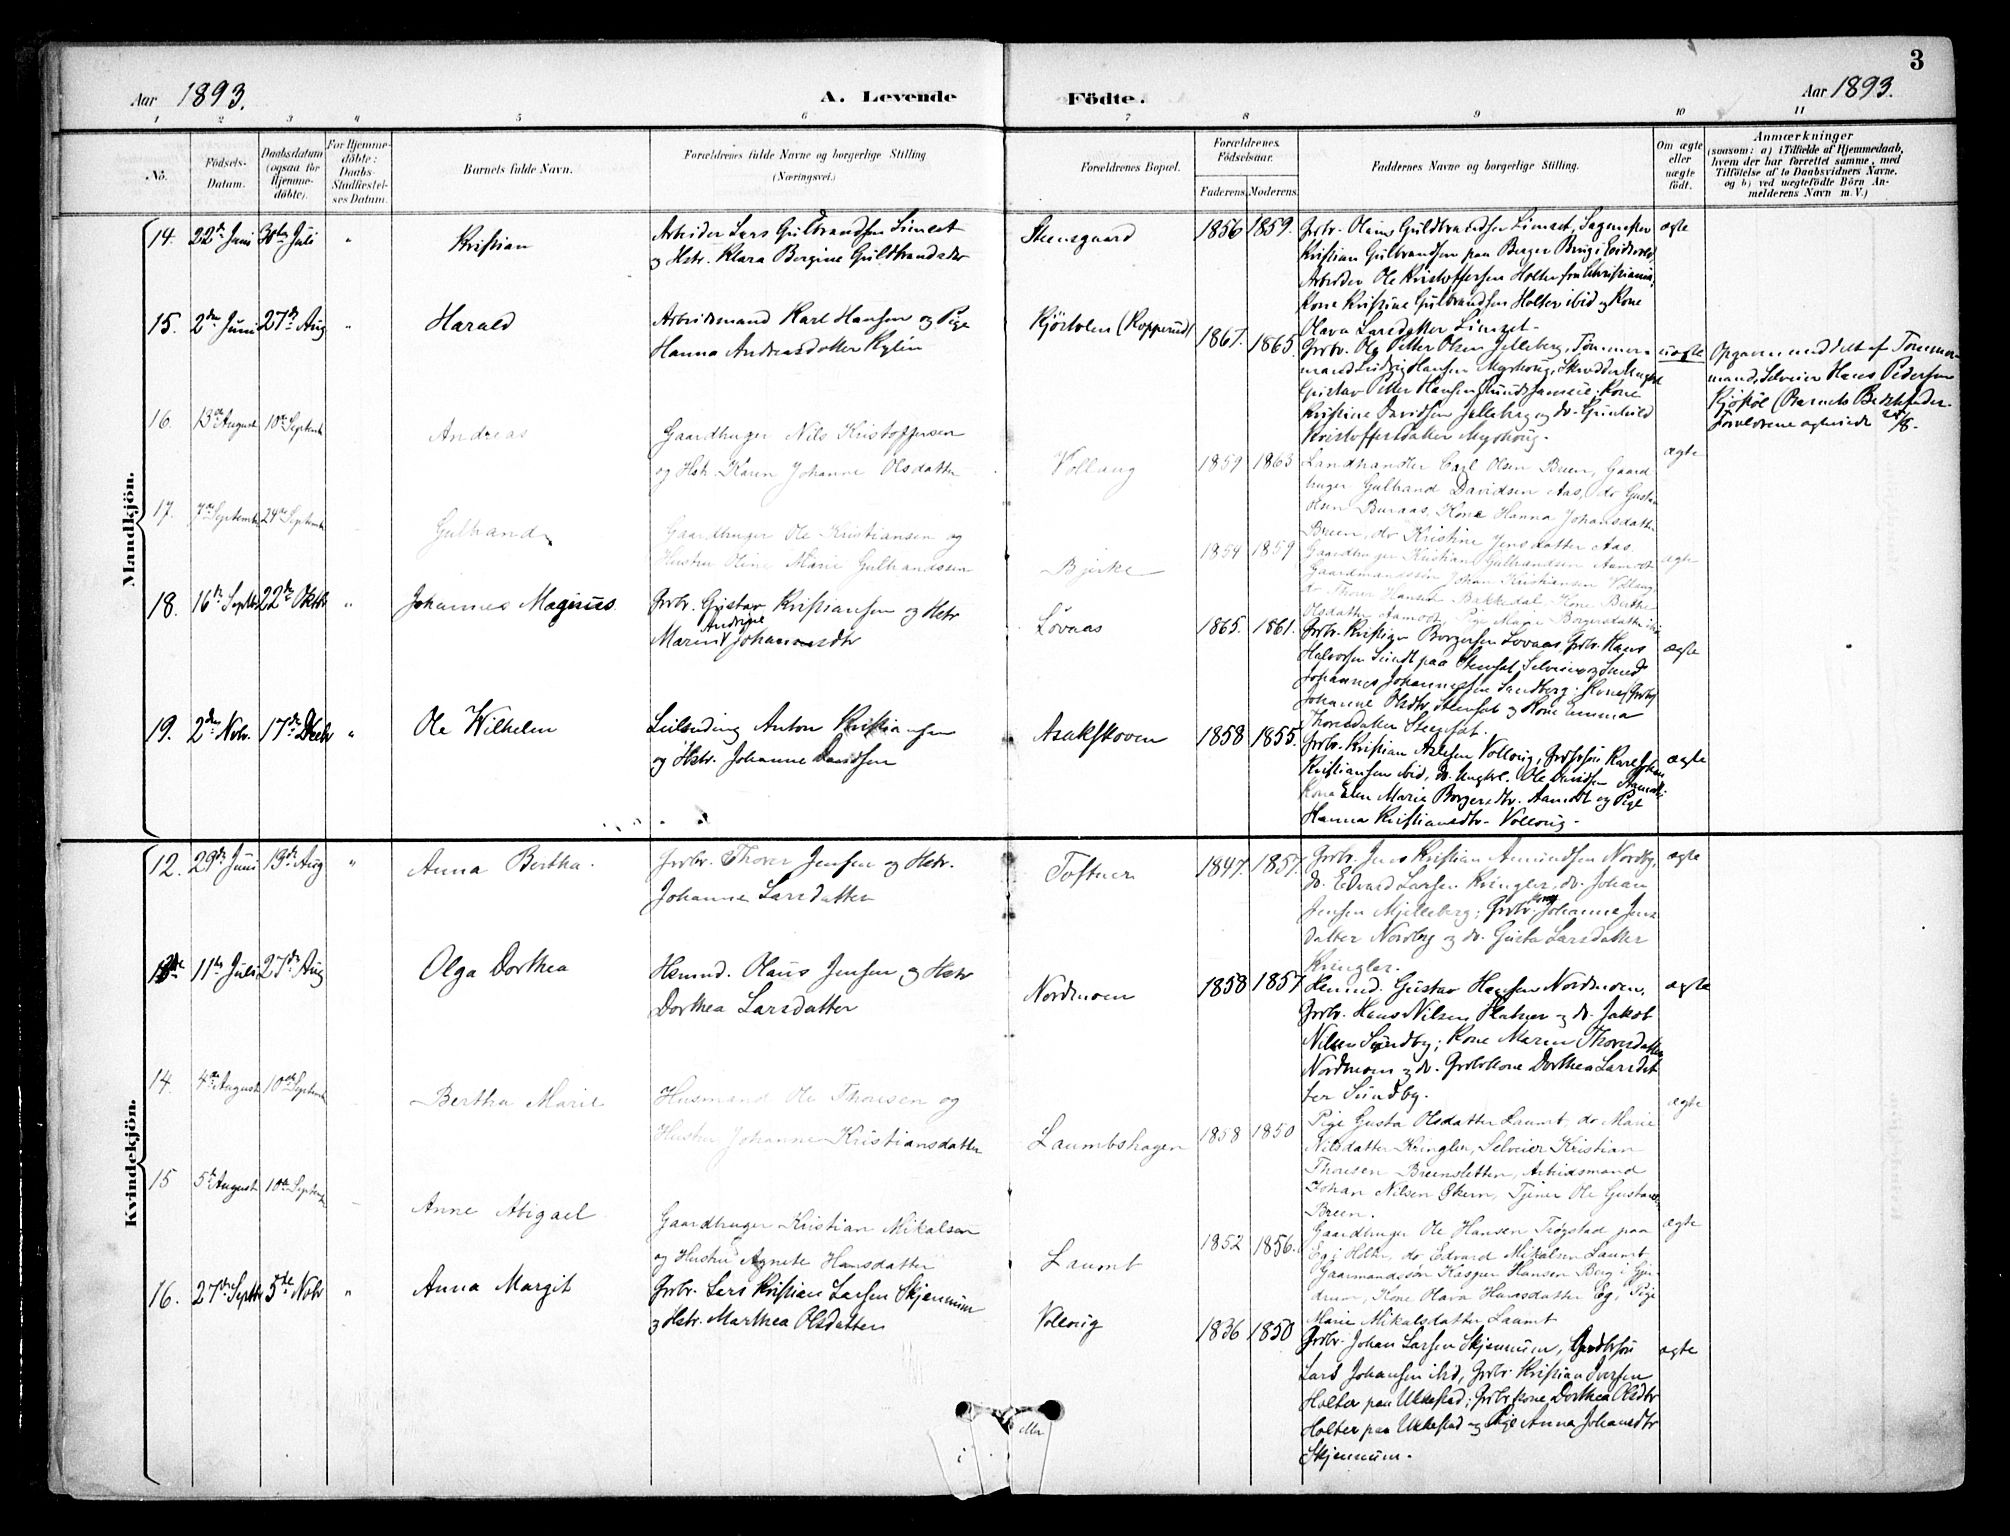 3
Aar 1893.
A. Levende Födte.
Aar 1893.
1 2 3 4 5 6 7 8 9 10 11
No.
Födsels-
Datum.
Daabsdatum
(ogsaa for
Hjemme-
döbte).
For Hjemme-
döbte:
Daabs-
Stadfæstel-
ses Datum.
Barnets fulde Navn.
Forældrenes fulde Navne og borgerlige Stilling
(Næringsvei.)
Forældrenes Bopæl.
Forældrenes
Födselsaar.
Faderens. Moderens.
Faddernes Navne og borgerlige Stilling.
Om ægte
eller
uægte
födt.
Anmærkninger
(saasom: a) i Tilfælde af Hjemmedaab,
hvem der har forrettet samme, med
Tilföielse af to Daabsvidners Navne.
og b) ved uægtefödte Börn An-
melderens Navn m. V.)
Mandkjön.
14. 22de Juni 30te Juli " Kristian
Arbeider Lars Gulbrandsen Limset
og Hstr. Klara Bergine Gulbrandsdtr
Steensgaard 1856 1859.
Grbr. Olaus Guldbrandsen Limset, Sagmester
Kristian Gulbrandsen paa Berger Brug i Eidsvold,
Arbeider Ole Kristoffersen Holter fra Christiania,
Kone Kristine Gulbrandsen Holter ibid og Kone
Olava Larsdatter Limset.
ægte
15. 2den Juni 27de Aug " Harald
Arbeidsmand Karl Hansen og Pige
Hanna Andreasdatter Kylin
Kjörtolen (Kopperud) 1867. 1865
Grbr. Ole Petter Olsen Jelleberg, Tömmer-
mand Ludvig Hansen Myrhoug, Skrædder Ungkl
Gustav Petter Hansen Kone
Kristine Davidsen Jelleberg og do. Gunhild
Kristoffersdatter Myrhoug.
uægte
Opgaven meddelt af Tömmer-
mand, Selveier Hans Pedersen
Kjöstöl (Barnets Bedstefader.
Forældrene agtersede 28/8.
16. 13de August 10de Septemb Andreas
Gaardbruger Nils Kristoffersen
og Hstr. Karen Johanne Olsdatter
Vollaug 1859 1863
Landhandler Carl Olsen Breen, Gaard-
bruger Gulbrand Davidsen Aas, do Gustav
Olsen Buraas, Kone Hanna Johansdatter
Breen, do Kristine Jensdatter Aas.
ægte
17. 7de Septembr 24de Septembr Gulbrand
Gaardbruger Ole Kristiansen og
Hustru Oline Marie Gulbrandsen
Bjerke 1854 1859
Gaardbruger Kristian Gulbrandsen Aamodt
Gaardmandssön Johan Kristiansen Vollaug,
do Thorer Hansen Bakkedal, Kone Berthe
Olsdatter Aamodt, Pige Marie Borgersdatter ibid
ægte
18. 16de Septbr 22de Oktbr " Johannes Magnus.
Grbr. Gustav Kristiansen og Hstr
Maren Andrine Johannesdtr
Lövaas 1865. 1861.
Grbr. Kristian Borgersen Lovaas, Grbr. Hans
Halvorsen Sundt paa Stensat, Selveier og Smed
Johannes Johannessen Sandberg; Kone (Grbr)
Johanne Olsdtr. Stensat og Kone Emma
Thoresdatter Steensat.
ægte
19. 2den Novbr. 17de Decbr " Ole Wilhelm
Leilænding Anton Kristiansen
og Hstr. Johanne Davidsen
Asakskoven 1858 1855.
Grbr. Kristian Axelsen Vollaug, Grbrsön Karl Johan
Kristiansen ibid, do. Ungkl. Ole Davidsen Aamodt
Kone Elen Marie Borgersdtr. Aamodt og Pige
Hanna Kristiansdtr. Vollaug.
ægte
Kvindekjön.
12. 29de Juni 13de Aug " Anna Bertha.
Grbr. Thorer Jensen og Hstr.
Johanne Larsdatter
Toftner 1847. 1857.
Grbr. Jens Kristian Amundsen Nordby,
do. Edvard Larsen Kringler, do. Johan
Jensen Mjelleberg; Grbr. Kone Johanne Jens
datter Nordby og do. Gusta Larsdatter
Kringler.
ægte
13de 11te Juli 27de Aug Olga Dorthea
Hsmnd. Olaus Jensen og Hstr
Dorthea Larsdatter
Nordmoen 1858 1857
Hsmnd. Gustav Hansen Nordmoen,
Grbr. Hans Nilsen Flatner og do. Jakob
Nilsen Sundby; Kone Maren Thoresdatter
Nordmoen og do. Grbr.kone Dorthea Larsdat
ter Sundby.
ægte
14. 4de August 10de Septemb Bertha Marie
Husmand Ole Thoresen og
Hustru Johanne Kristiansdatter
Laumbshagen 1858 1850
Pige Gusta Olsdatter Laumt, do Marie
Nilsdatter Kringler, Selveier Kristian
Thoresen Breensletten, Arbeidsmand
Johan Nilsen Skern, Tjener Ole Gustavsen
Breen.
ægte
15 5te August 10de Septemb Anne Abigael
Gaardbruger Kristian Mikalsen
og Hustru Agnete Hansdatter
Laumt 1852 1856.
Gaardbruger Ole Hansen Trøgstad paa
Eg i Holter, do Edvard Mikalsen Laumt
Gaarmandssön Kasper Hansen Berg i Gjer
drum, Kone Olava Hansdatter Eg, Pige
Marie Mikalsdatter Laumt
ægte
16. 27de Septbr 5te Novbr " Anna Margit
Grbr. Lars Kristian Larsen Skjennum
og Hstr. Marthea Olsdatter
Vollaug 1836 1850
Grbr. Johan Larsen Skjennum, Gardbrsön
Lars Johansen ibid, Grbr. Kristian Iversen
Holter paa Ukkestad; Grbr.kone Dorthea Olsdtr
Holter paa Ukkestad og Pige Anna Johansdtr
Skjennum.
ægte